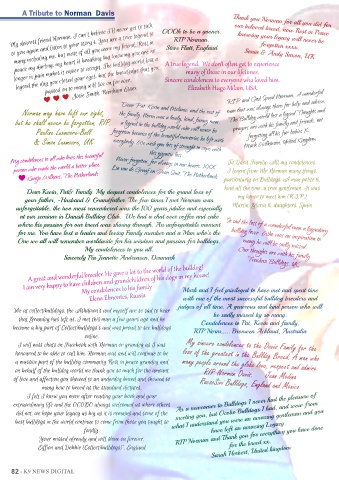 A Tribute to Norman Davis
My dearest friend Norman, I can't believe I'll never get to talk
to you again and listen to your story's. You are a true legend to
many including me, but most of all you were my friend. Rest in
peace my darling, my heart is breaking but knowing you are no
longer in pain makes it easier to accept. The bulldog world lost a
legend the day you closed your eyes, but the knowledge that you
passed on to many will live on for ever.
Josie Smith, Wareham Glen
OOOh to be a gooner.
RIP Norman
Steve Platt, England
A true legend. We don't often get to experience
many of those in our lifetimes.
Sincere condolences to everyone who loved him.
Elizabeth Hugo Milam, USA
Thank you Norman for all you did for
our beloved breed, now Rest in Peace
knowing your legacy will never be
forgotten xxxx.
Sonia & Andy Saxon, UK
Norman may have left our sight,
but he shall never be forgotten, RIP.
Pauline Laumann-Ball
& Simon Laumann, UK
My condolences to all who knew this beautiful
person who made the world a better place.
Gerdje Collaris, The Netherlands
Dear Pat, Kevin and Melanie, and the rest of
the family. Norm was a lovely, kind, funny man.
A legend in the bulldog world who will never be
forgotten because of the beautiful memories he left with
everybody. We wish you lots of strength to cope with
this immense loss.
Never forgotten, for always in our hearts. XXX
Lia van de Graaf en Daan Smit, The Netherlands
RIP and God Speed Norman. A wonderful
man that was always there for help and advice.
The Bulldog world lost a legend. Thoughts and
prayers are with his family and friends, not
forgetting all his fur babies. X
Mark Colkinson, United Kingdom
Dear Kevin, Pat & Family. My deepest condolences for the grand loss of
your father, -Husband & Grandfather. The few times I met Norman was
unforgettable, the two most remembered was the 100 years jubilee and especially
at our seminar in Danish Bulldog Club. We had a chat over coffee and cake
where his passion for our breed was shining through. An unforgettable moment
for me. You have lost a leader and loving Family member and a Man who's the
One we all will remember worldwide for his wisdom and passion for bulldogs.
My condolences to you all.
Sincerely Pia Jeanette Andreasen, Denmark
To Davis Family -All my condolences.
I learnt from Mr Norman many things
particularly on Bulldogs. At one photo he
kind all the time, a true gentleman. It was
my honor to meet him (R.I.P.)
Mercia, Alexia & daughters, Spain
To sad the loss of a wonderful man a legendary
bulldog hero to so, ours an inspiration to
many he will be sadly missed.
Our thoughts are with his family.
Freidom Bulldogs, UK
A great and wonderful breeder. He gave a lot to the world of the bulldog!
I am very happy to have children and grandchildren of his dogs in my house!
My condolences to his family.
Elena Elmentes, Russia
We at collectibulldogs, the Atkinson's and myself are so sad to hear
that Norman has left us. I met this man a few years ago and he
become a big part of Collectibulldogs and was proud to see bulldogs
online.
I will miss chats on Facebook with Norman or granmy as I was
honoured to be able to call him. Norman was and will continue to be
a massive part of the bulldog community. Rest in peace granmy and
on behalf of the bulldog world we thank you so much for the amount
of love and affection you showed to an underdog breed and showed so
many how to breed at the standard dictated.
I felt I knew you more after reading your book and your
extraordinary life and the OCOBO always welcomed us where others
did not, we hope your legacy as big as it is carried and some of the
best bulldogs in the world continue to come from those you taught so
fondly.
Your missed already and will shine on forever.
Elffion and Debbie (Collectibulldogs) England
Mark and I feel privileged to have met and spent time
with one of the most successful bulldog breeders and
judges of all time. A generous and kind person who will
be sadly missed by so many.
Condolences to Pat, Kevin and family.
RIP Norm .... Bronwen Ackland, Australia
My sincere condolences to the Davis Family for the
loss of the greatest in the Bulldog Breed. A man who
many people around the globe love, respect and admire.
RIP Norman Davis. Juan Medina
RenvaSim Bulldogs, England and Mexico
As a newcomer to Bulldogs I never had the pleasure of
meeting you, but Ocobo Bulldogs I had, and now from
what I understand you were an amazing gentleman and you
have left an amazing Legacy.
RIP Norman and Thank you for everything you have done
for the breed xx.
Sarah Herbert, United Kingdom
82 - K9 NEWS DIGITAL